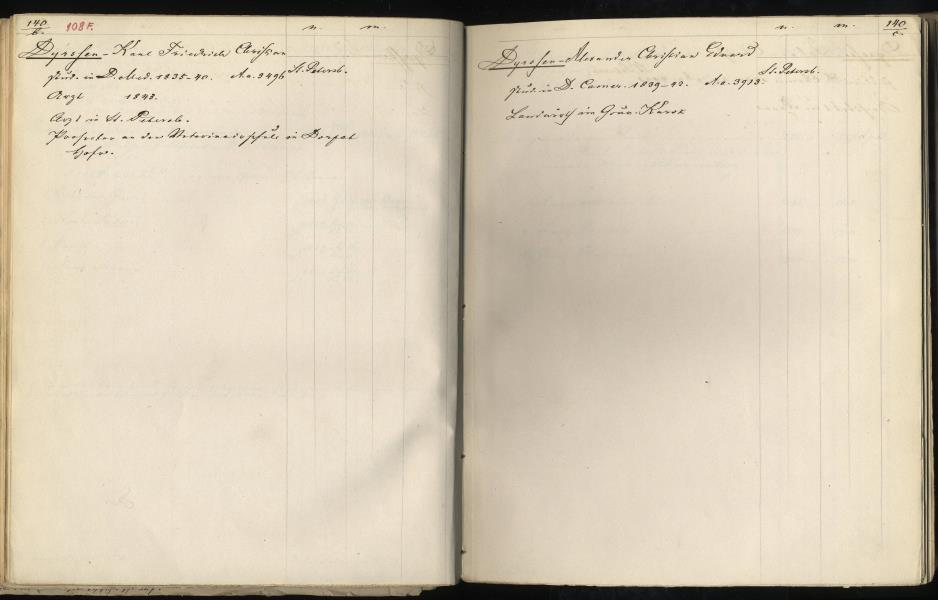 140
b.
108 F.
n. m.
Dyrssen - Karl Friedrich Christian
stud. in D. Med. 1835-40. A.a. 3496 St. Petersb.
Arzt 1843.
Arzt in St. Petersb.
Prosector an der Veterinairschule in Dorpat
Hofr.
n. m.
140
c.
Dyrssen - Alexander Christian Eduard
stud. in D. Camer. 1839-42. A.a. 3913. St. Petersb.
Landwirth im Gouv. Kursk